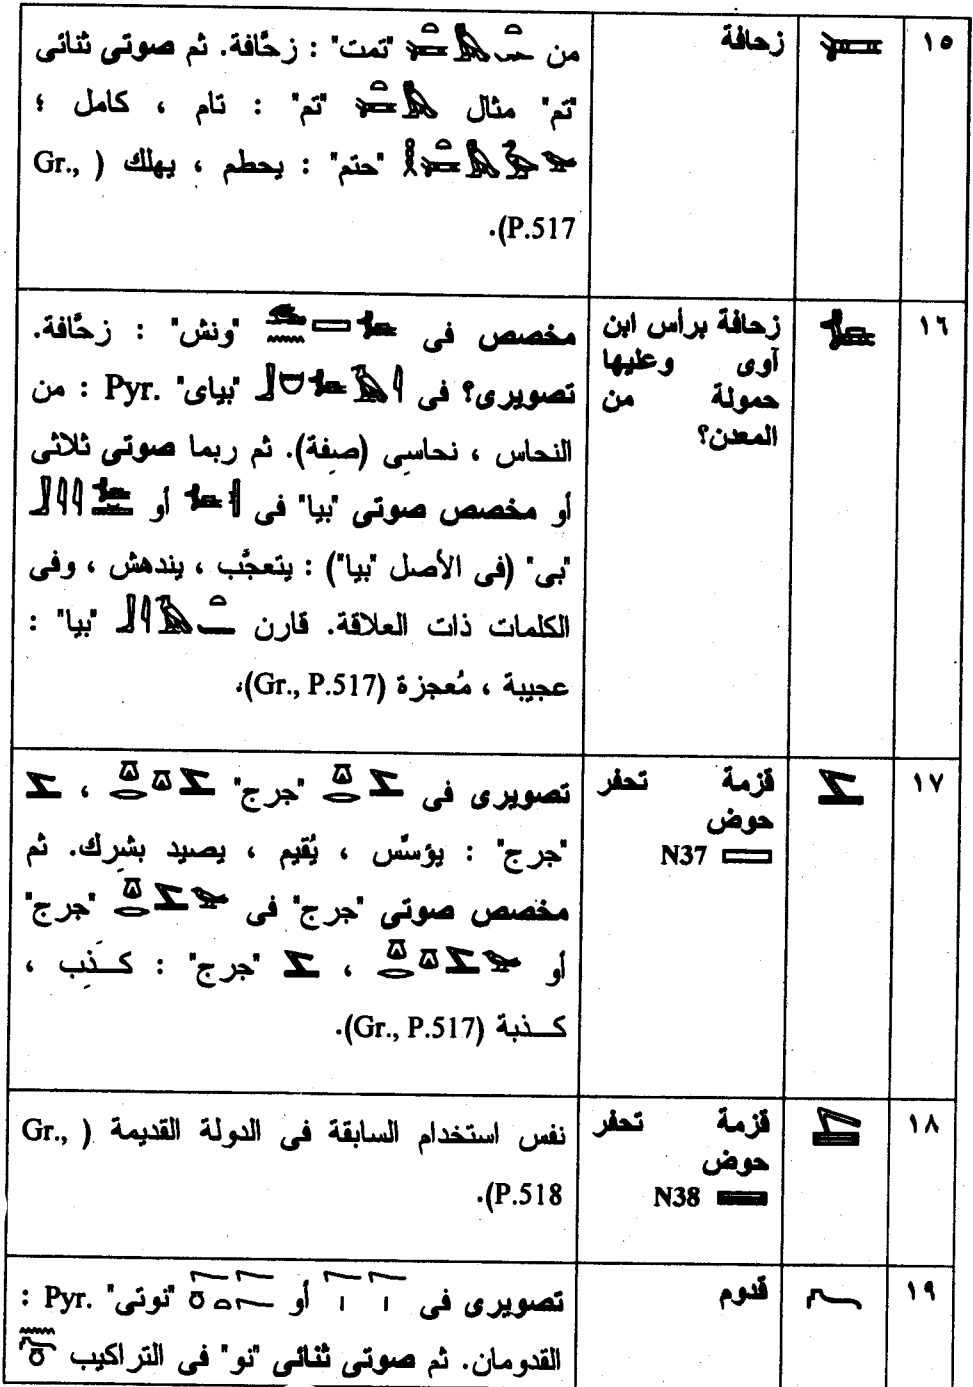 ١٥
زحافة
من "تمت" : زحَّافة. ثم صوتى ثنائى
"تم" مثال "تم" : تام ، كامل ؛
"حتم" : يحطم ، يهلك ( Gr.,
P.517).
١٦
زحافة برأس ابن
آوى وعليها
حمولة من
المعدن؟
مخصص فى "ونش" : زحَّافة.
تصويرى؟ فى "بياى" Pyr. : من
النحاس ، نحاسِى (صفة). ثم ربما صوتى ثلاثى
أو مخصص صوتى "بيا" فى أو
"بى" (فى الأصل "بيا") : يتعجَّب ، يندهش ، وفى
الكلمات ذات العلاقة. قارن "بيا" :
عجيبة ، مُعجزة (Gr., P.517).
١٧
قزمة تحفر
حوض
N37
تصويرى فى "جرج" ،
"جرج" : يؤسَّس ، يُقيم ، يصيد بشرِك. ثم
مخصص صوتى "جرج" فى "جرج"
أو ، "جرج" : كَذِب ،
كذبة (Gr., P.517).
١٨
قزمة تحفر
حوض
N38
نفس استخدام السابقة فى الدولة القديمة ( Gr.,
P.518).
١٩
قدوم
تصويرى فى أو "نوتى" Pyr. :
القدومان. ثم صوتى ثنائى "نو" فى التراكيب